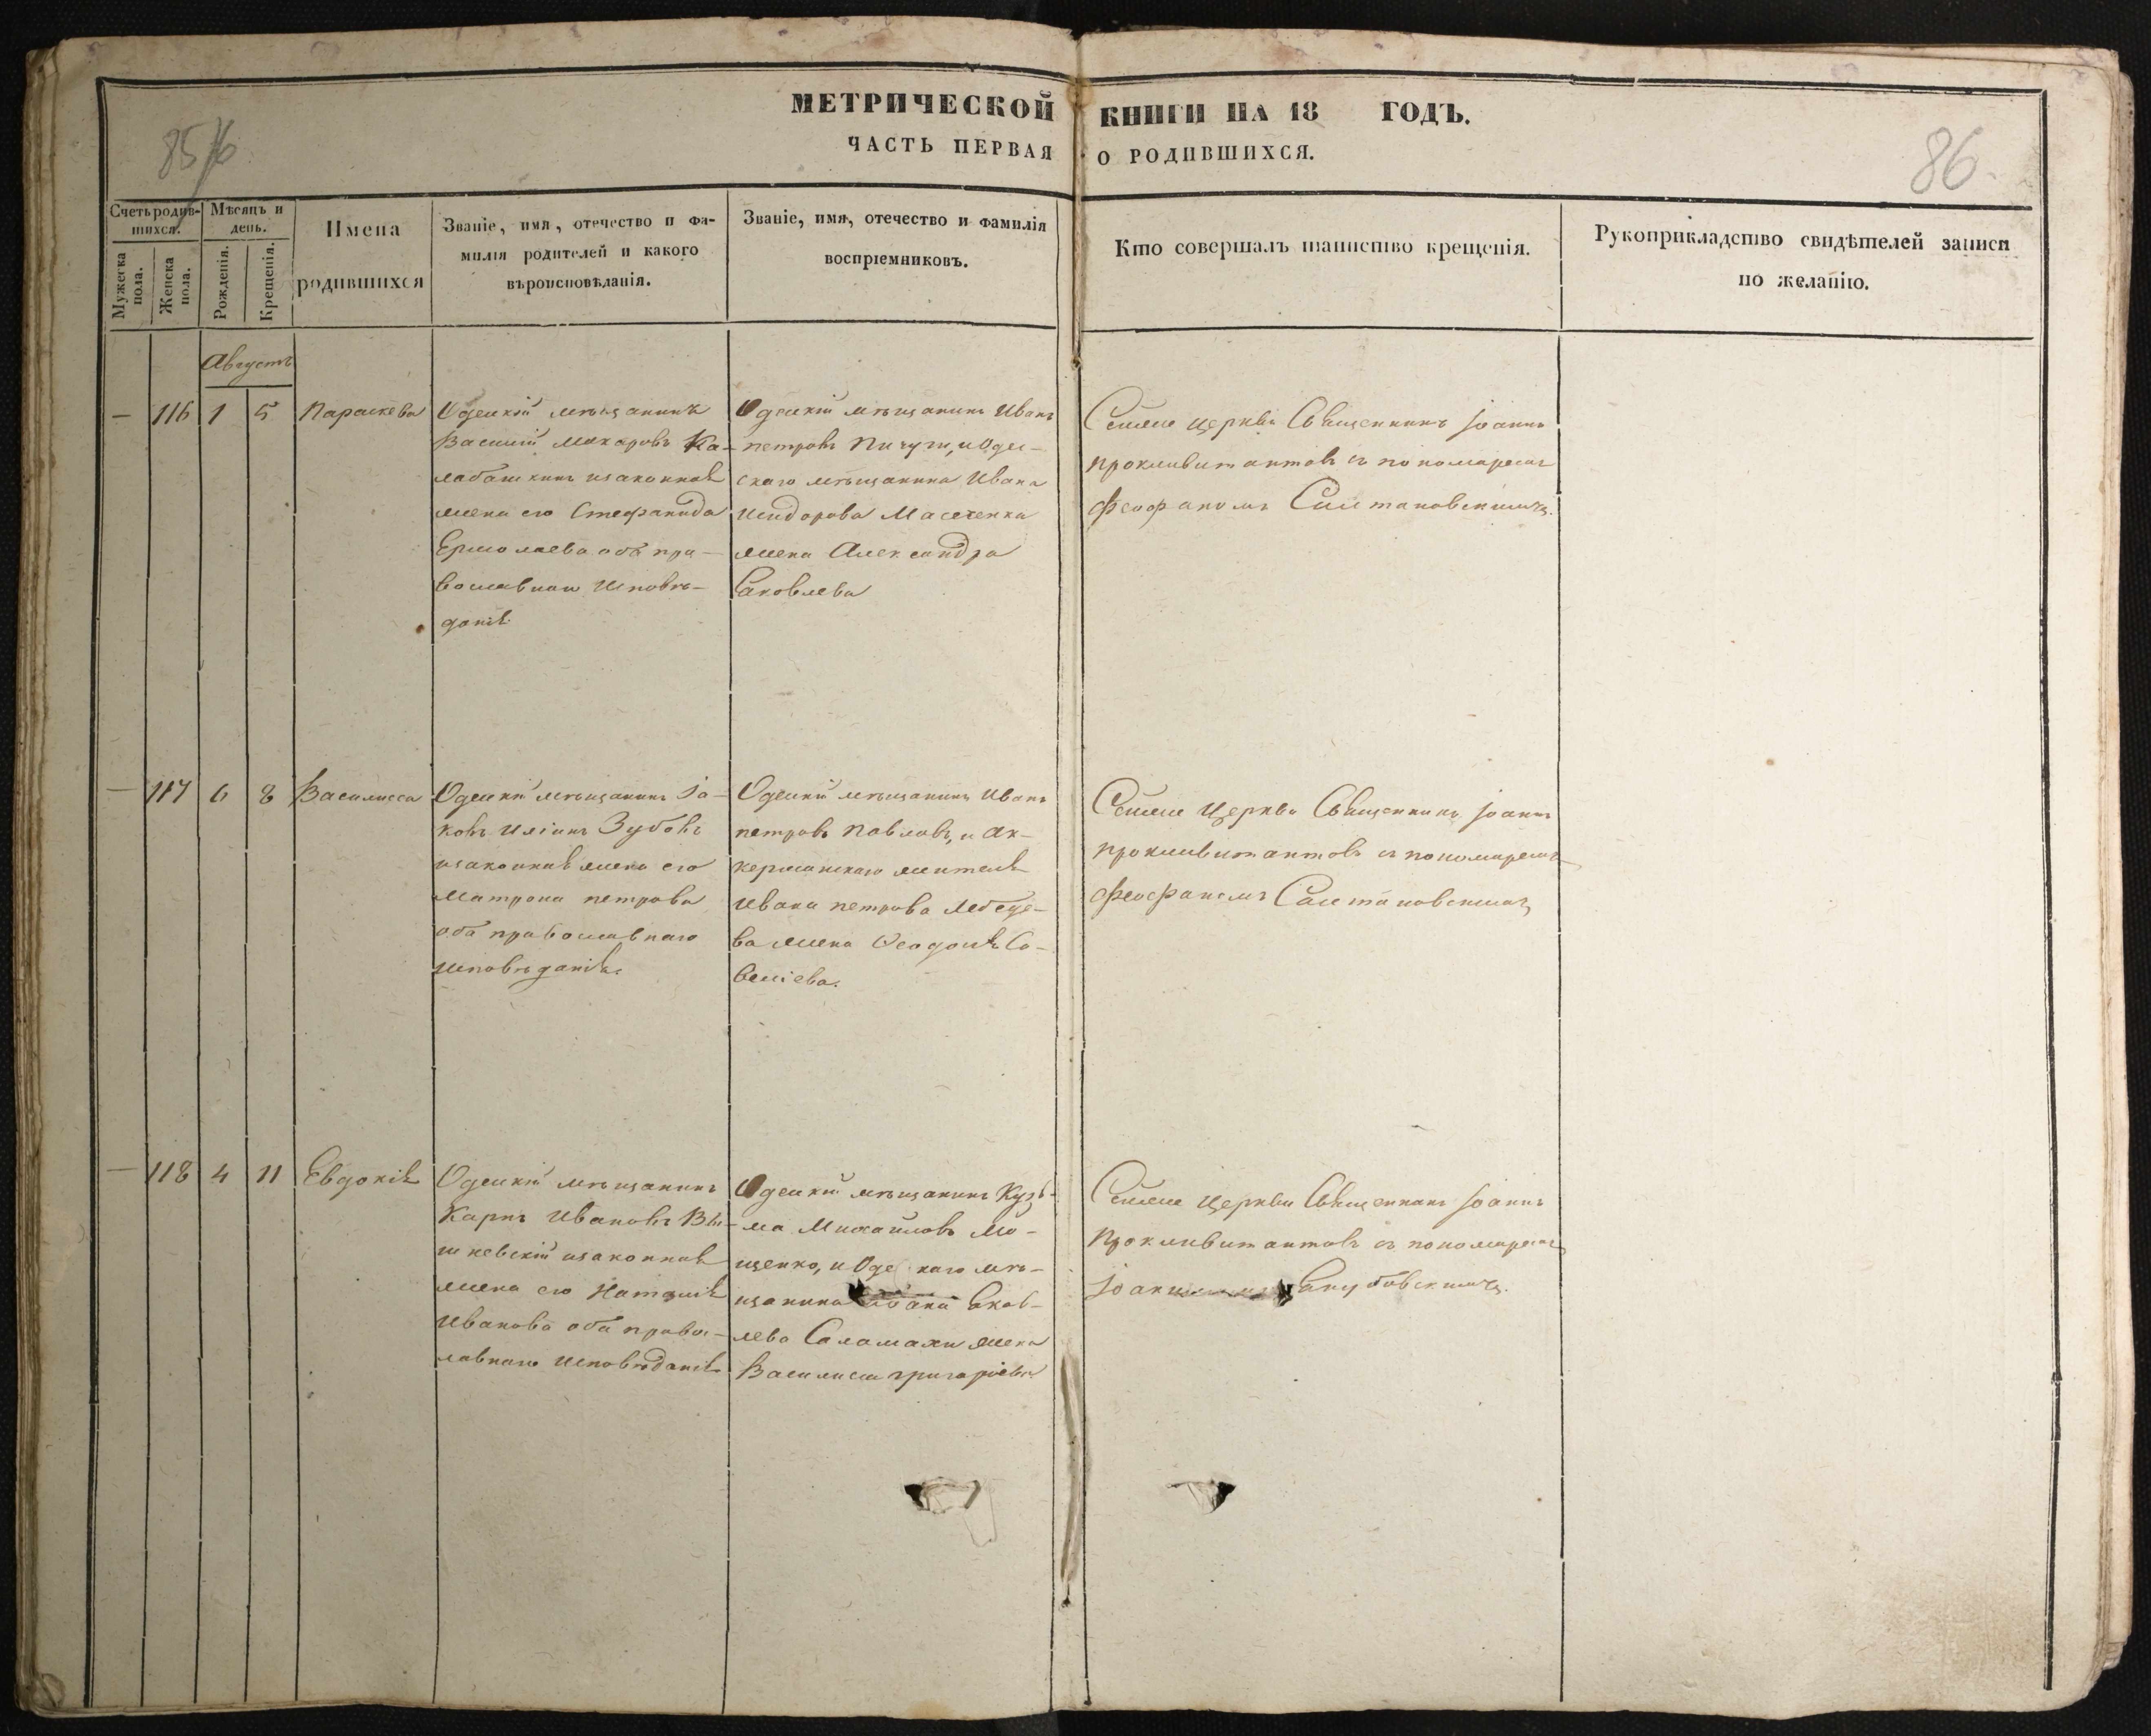 МЕТРИЧЕСКОЙ КНИГИ НА 18 ГОДЪ.
ЧАСТЬ ПЕРВАЯ О РОДИВШИХСЯ.
85/6
86.
Счетъ родив-
шихся.
Мужеска
пола.
Женска
пола.
Мѣсяцъ и
день.
Рожденія.
Крещенія.
Имена
родившихся
Званіе, имя, отечество и фа-
милія родителей и какого
вѣроисповѣданія.
Званіе, имя, отечество и фамилія
воспріемниковъ.
Кто совершалъ таинство крещенія.
Рукоприкладство свидѣтелей записи
по желанію.
Августъ
— 116 1 5 Параскева
Одескій мѣщанинъ
Василій Макаровъ Ка-
лабашкинъ изаконная
жена его Стефанида
Ермолаева оба пра-
вославнаго Исповѣ-
данія
Одескій мѣщанинъ Иванъ
петровъ Пичуги, и Одес-
скаго мѣщанина Ивана
Исидорова
жена Александра
Яковлева
Сеяже церкви Священникъ Іоаннъ
съ пономаремъ
Феофаномъ
— 117 6 8 Василисса
Одескій мѣщанинъ Іа-
ковъ Иліинъ Зубовъ
изаконная жена его
Матрона петрова
оба православнаго
исповѣданія.
Одескій мѣщанинъ Иванъ
петровъ Павловъ, и Ак-
керманскаго жителя
Ивана петрова Лебеде-
ва жена Ѳеодосія Са-
веліева.
Сеяже Церкви Священникъ Іоаннъ
съ пономаремъ
Феофаномъ
— 118 4 11 Евдокія
Одескій мѣщанинъ
Карпъ Ивановъ Вы-
шневскій изаконная
жена его Наталія
Иванова оба правос-
лавнаго Исповѣданія
Одескій мѣщанинъ Кузь-
ма Михайловъ Мо-
ценко, и Оде каго мѣ-
щанина Яков-
лева Саламахи жена
Василиса григоріева
Сеяже Церкви Священникъ Іоаннъ
съ пономаремъ